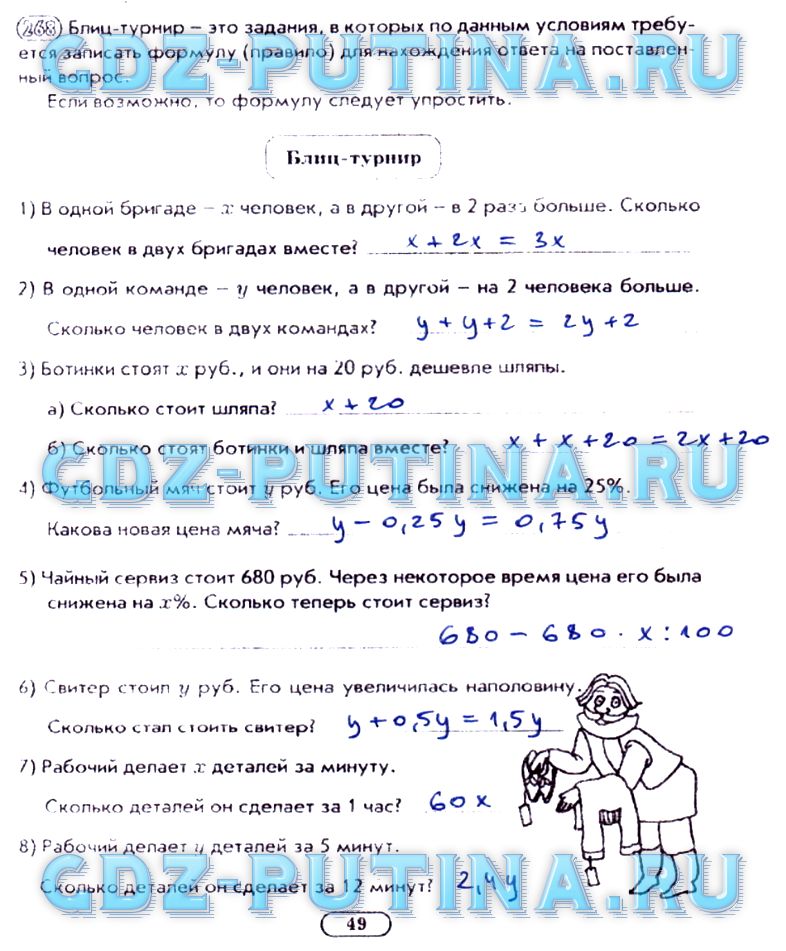 268 Блиц-турнир – это задания, в которых по данным условиям требу-
ется записать формулу (правило) для нахождения ответа на поставлен-
ный вопрос.
Если возможно, то формулу следует упростить.
Блиц-турнир
1) В одной бригаде – x человек, а в другой – в 2 раза больше. Сколько
человек в двух бригадах вместе? x + 2x = 3x
2) В одной команде – y человек, а в другой – на 2 человека больше.
Сколько человек в двух командах? y + y + 2 = 2y + 2
3) Ботинки стоят x руб., и они на 20 руб. дешевле шляпы.
а) Сколько стоит шляпа? x + 20
б) Сколько стоят ботинки и шляпа вместе? x + x + 20 = 2x + 20
GDZ-PUTINA.RU
4) Футбольный мяч стоит y руб. Его цена была снижена на 25%.
Какова новая цена мяча? y – 0,25y = 0,75y
5) Чайный сервиз стоит 680 руб. Через некоторое время цена его была
снижена на x%. Сколько теперь стоит сервиз?
680 – 680 · x : 100
6) Свитер стоил y руб. Его цена увеличилась наполовину.
Сколько стал стоить свитер? y + 0,5y = 1,5y
7) Рабочий делает x деталей за минуту.
Сколько деталей он сделает за 1 час? 60x
8) Рабочий делает y деталей за 5 минут.
Сколько деталей он сделает за 12 минут? 2,4y
GDZ-PUTINA.RU
49
GDZ-PUTINA.RU